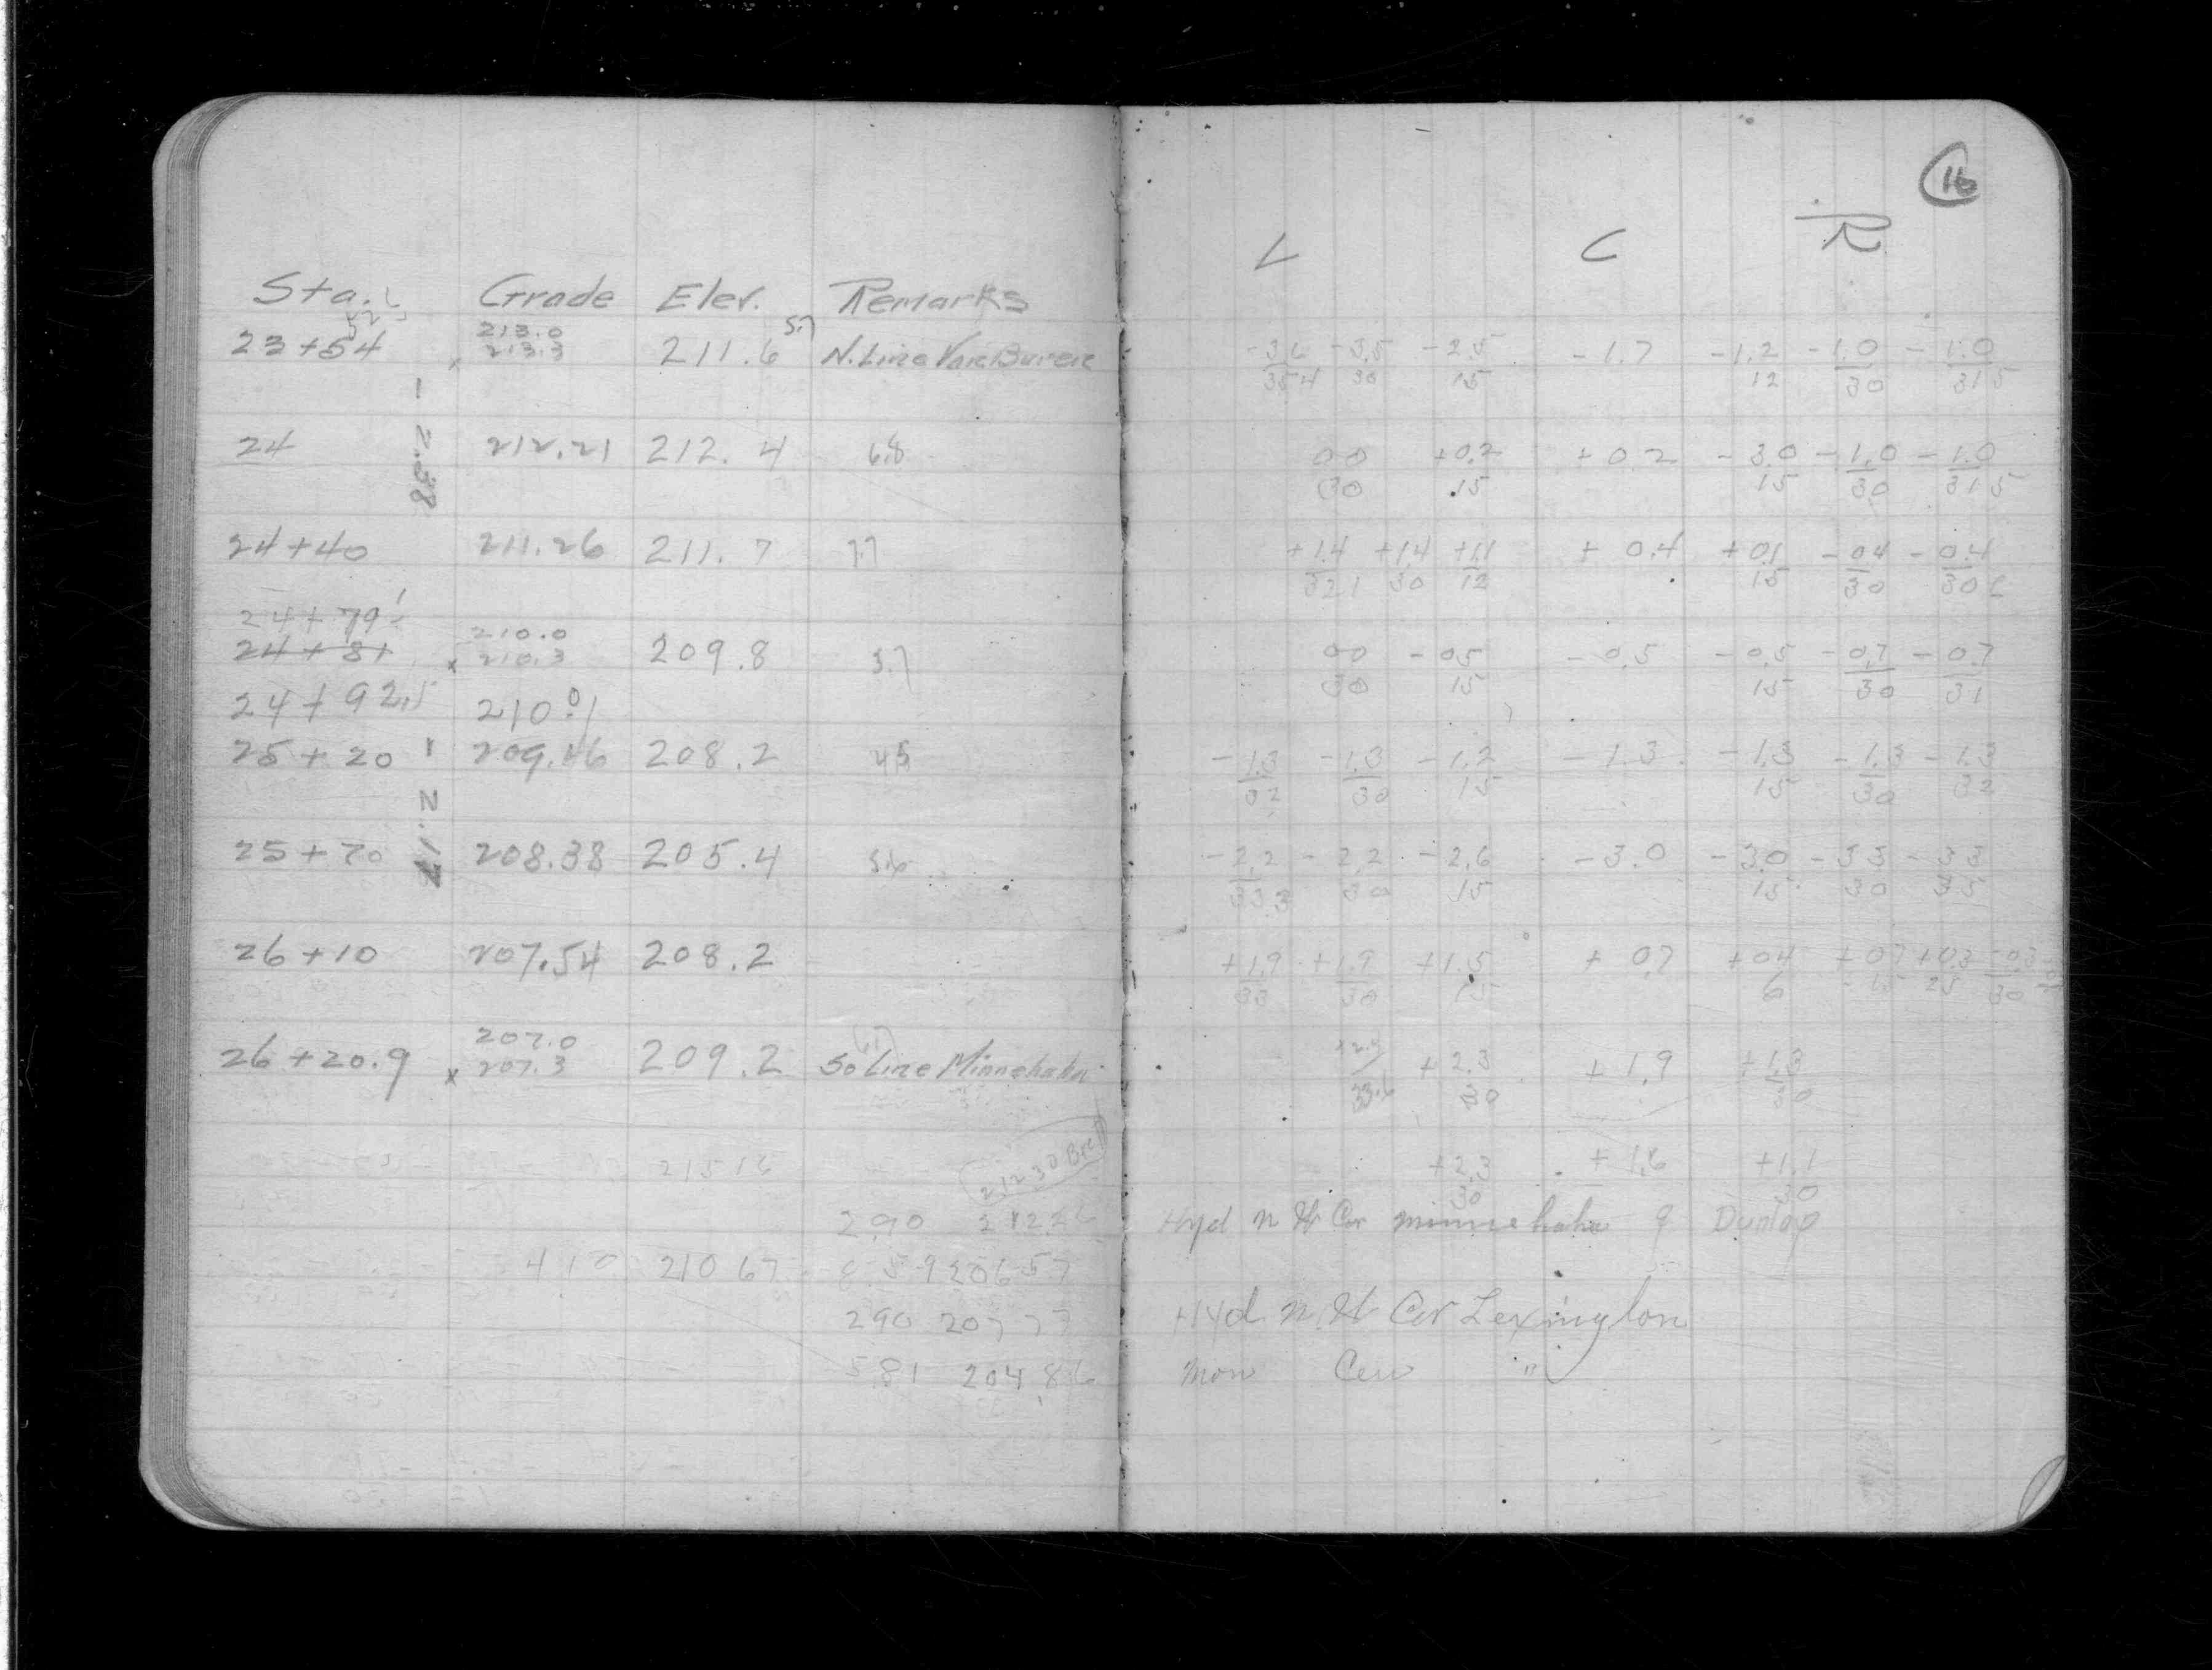 16
L C R
Sta. Grade Elev. Remarks
213.0 5.7
23+54 213.3 211.6 N. Line Van Buren -3.6 -3.5 -2.5 -1.7 -1.2 -1.0 -1.0
35 4 30 15 12 30 31 5
- 2.38
24 212.21 212.4 6.8 00 +0.2 +0.2 -3.0 -1.0 -1.0
30 15 15 30 31 5
24+40 211.26 211.7 7.7 +1.4 +1.4 +1.1 +0.4 +0.1 -0.4 -0.4
32 1 30 12 15 30 30
24+79 210.0
24+81 x 210.3 209.8 3.7 00 -0.5 -0.5 -0.5 -0.7 -0.7
30 15 15 30 31
24+92.5 210.01
25+20 209.46 208.2 4.5 -1.3 -1.3 -1.2 -1.3 -1.3 -1.3 -1.3
32 30 15 15 30 32
2.17
25+70 208.38 205.4 5.6 -2.2 -2.2 -2.6 -3.0 -3.0 -3.3 -3.3
33 3 30 15 15 30 35
26+10 207.54 208.2 +1.9 +1.9 +1.5 +0.7 +0.4 +0.7 +0.3 -0.3
33 30 15 6 25 30
207.0
26+20.9 x 207.3 209.2 So Line Minnehaha +2.3 +1.9 +1.3
33.6 30 30
215 16 212 30 +2.3 +1.6 +1.1
30 30
2.90 Hyd n W Cor minnehaha & Dunlap
4 10 210 67 206 57
290 207 77 Hyd n W Cor Lexington
5.81 204 86 Mon Cen "